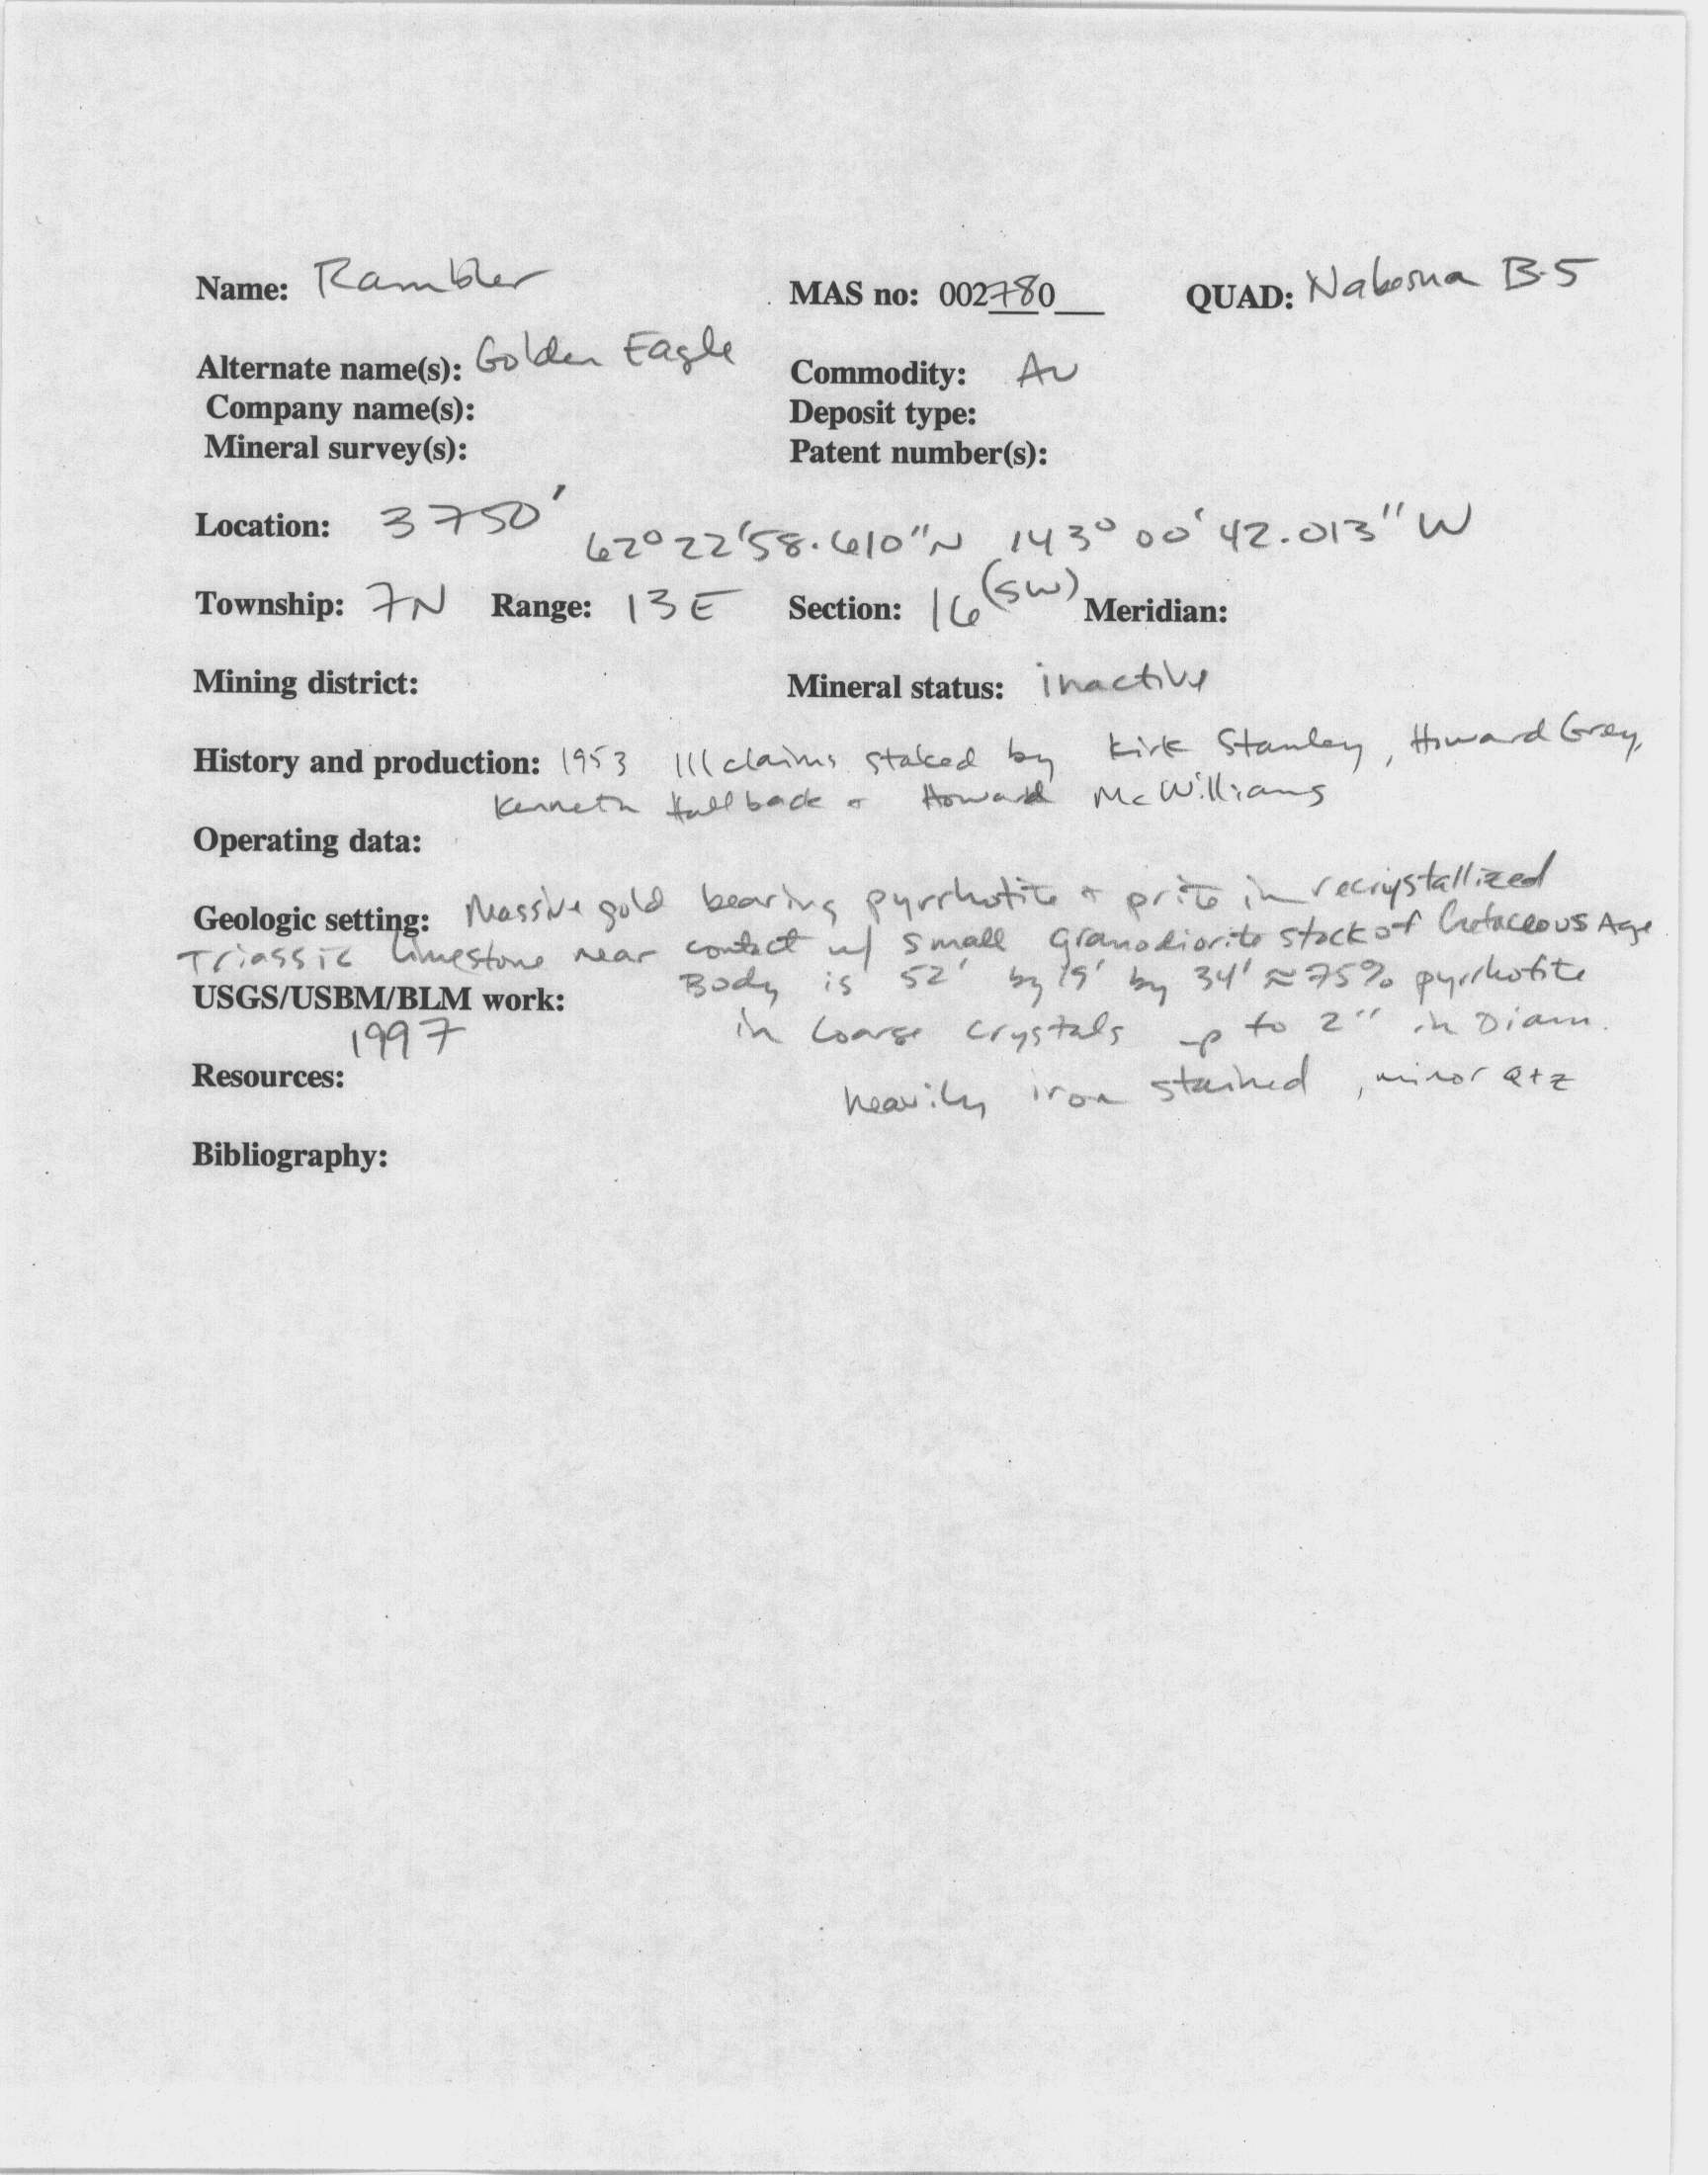 Name: Rambler MAS no: 002780 QUAD: Nabesna B-5
Alternate name(s): Golden Eagle Commodity: Au
Company name(s): Deposit type:
Mineral survey(s): Patent number(s):
Location: 3750' 62° 22' 58.610" N 143° 00' 42.013" W
Township: 7N Range: 13E Section: 16 (SW) Meridian:
Mining district: Mineral status: inactive
History and production: 1953 111 claims staked by Kirk Stanley, Howard Grey,
Kenneth Hallback & Howard McWilliams
Operating data:
Geologic setting: Massive gold bearing pyrrhotite & prite in recrystallized
Triassic limestone near contact w/ small granodiorite stock of Cretaceous Age
Body is 52' by 19' by 34' ≈ 75% pyrrhotite
USGS/USBM/BLM work:
1997
in coarse crystals up to 2" in Diam.
Resources:
heavily iron stained, minor qtz
Bibliography: